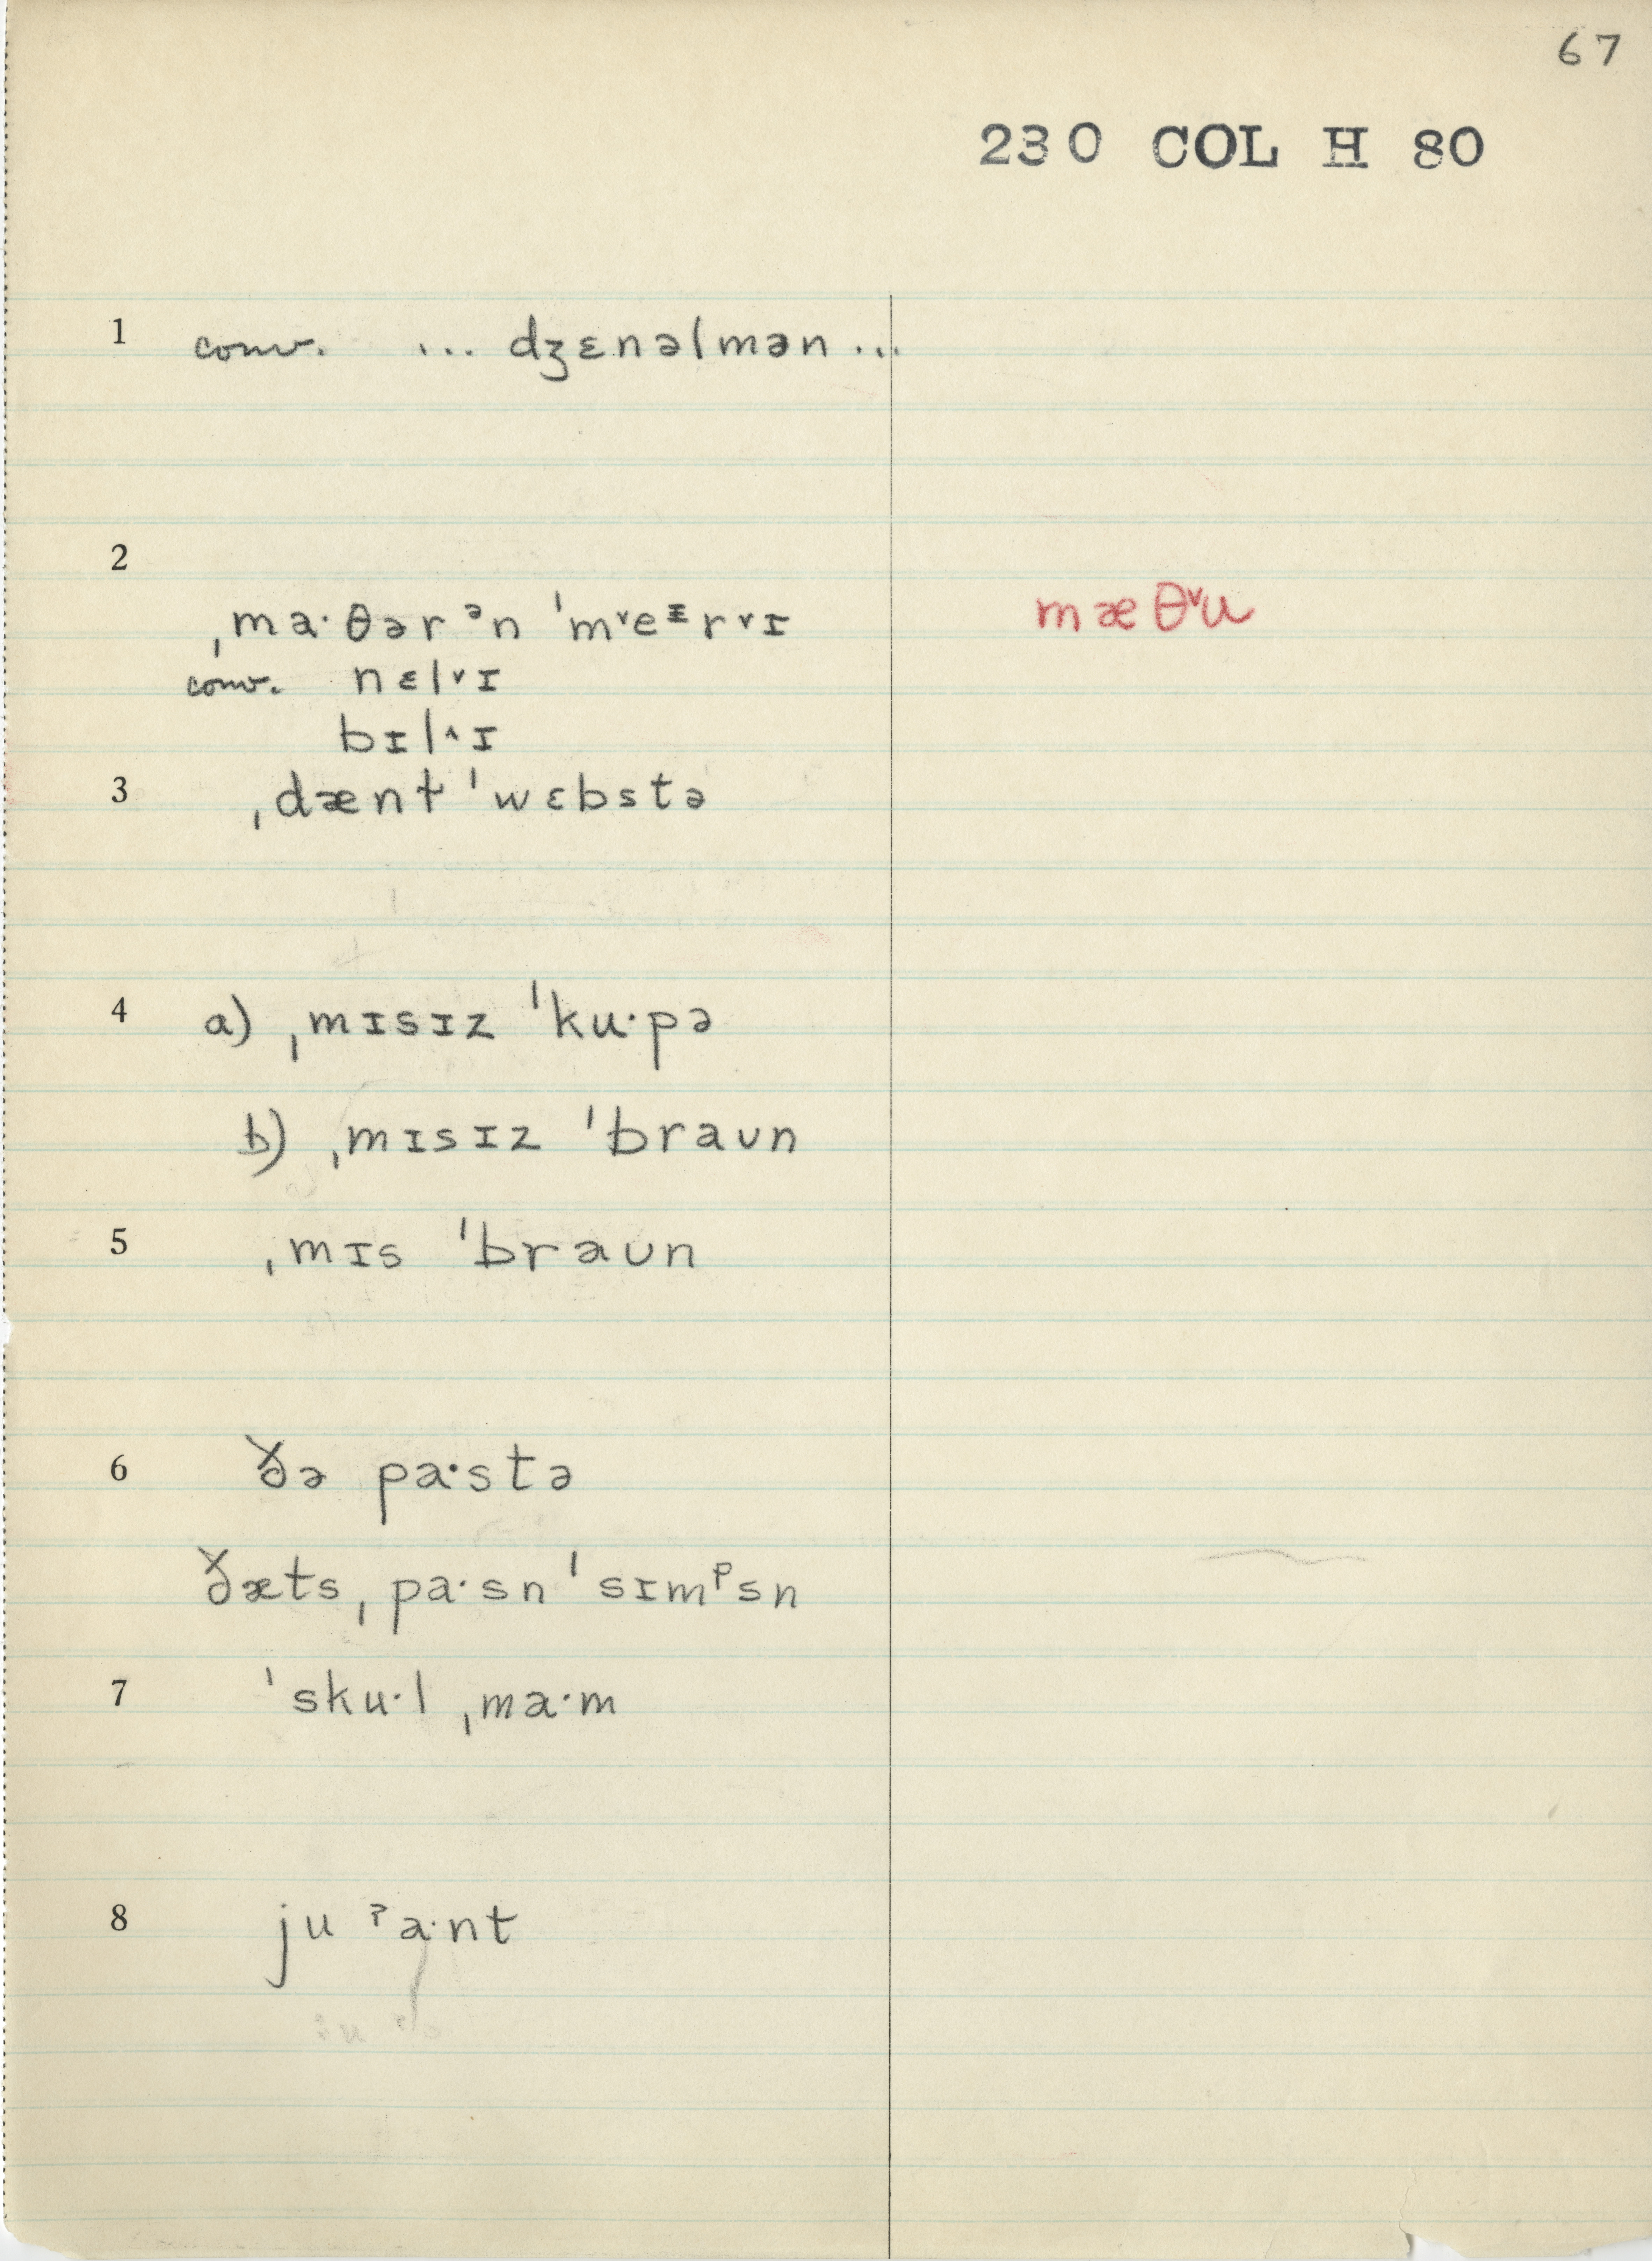 67
230 COL H 80
1 conv. ... dʒɛnəlmən ...
2
ˌma·θər ᵊn ˈm˅eᶦr˅ɪ mæθ˅u
conv. nɛl˅ɪ
bɪl^ɪ
3 ˌdænt ˈwɛbstə
4 a) ˌmɪsɪz ˈku·pə
b) ˌmɪsɪz ˈbraʊn
5 ˌmɪs ˈbraʊn
6 ðə pa·stə
ðæts ˌpa·sn ˈsɪmᵖsn
7 ˈsku·l ˌma·m
8 ju ˀa·nt